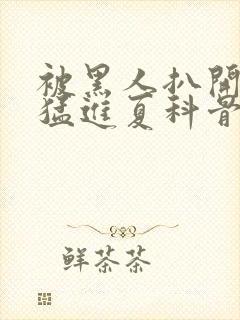 被黑人扒開
猛進夏科骨
鲜茶茶